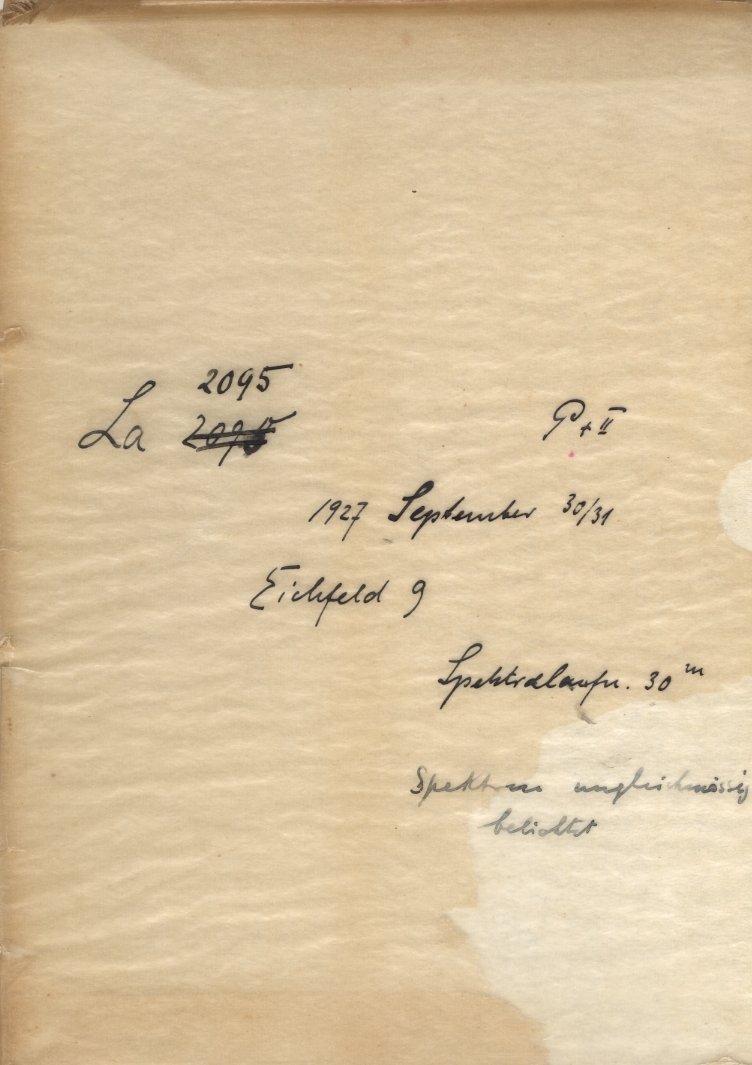 2095
La 2095 P + II
1927 September 30/31
Eichfeld 9
Spektralaufn. 30 m
Spektrum ungleichmässig
belichtet